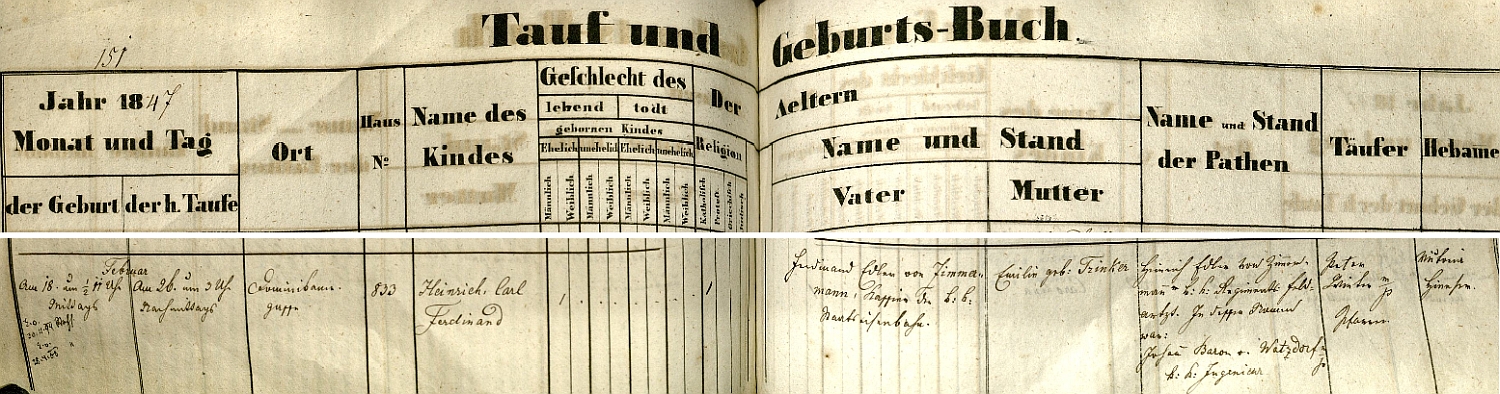 Tauf und Geburts-Buch.
151
Jahr 1847
Monat und Tag
der Geburt
der h. Taufe
Ort
Haus
No
Name des
Kindes
Geschlecht des
lebend
todt
gebornen Kindes
Ehelich
unehelich
Ehelich
unehelich
Männlich
Weiblich
Männlich
Weiblich
Männlich
Weiblich
Männlich
Weiblich
Der
Religion
Katholisch
Protest.
Griechisch
Aeltern
Name und Stand
Vater
Mutter
Name und Stand
der Pathen
Täufer
Hebame
Februar
Am 18. um ½ 11 Uhr
Mittags
Am 26. um 3 Uh.
Nachmittags
Dominikaner
gasse
833
Heinrich, Carl
Ferdinand
1
1
Ferdinand Edler von Zimmer
mann, Kassier der k: k:
Staatseisenbahn.
Emilie geb: Trinker
Heinrich Edler von Zimer
mann k: k: Regiments Feld
arzt. In dessen Namen
war:
Johann Baron v. Watzdorf
k: k: Ingenieur
Peter
Pfarrer